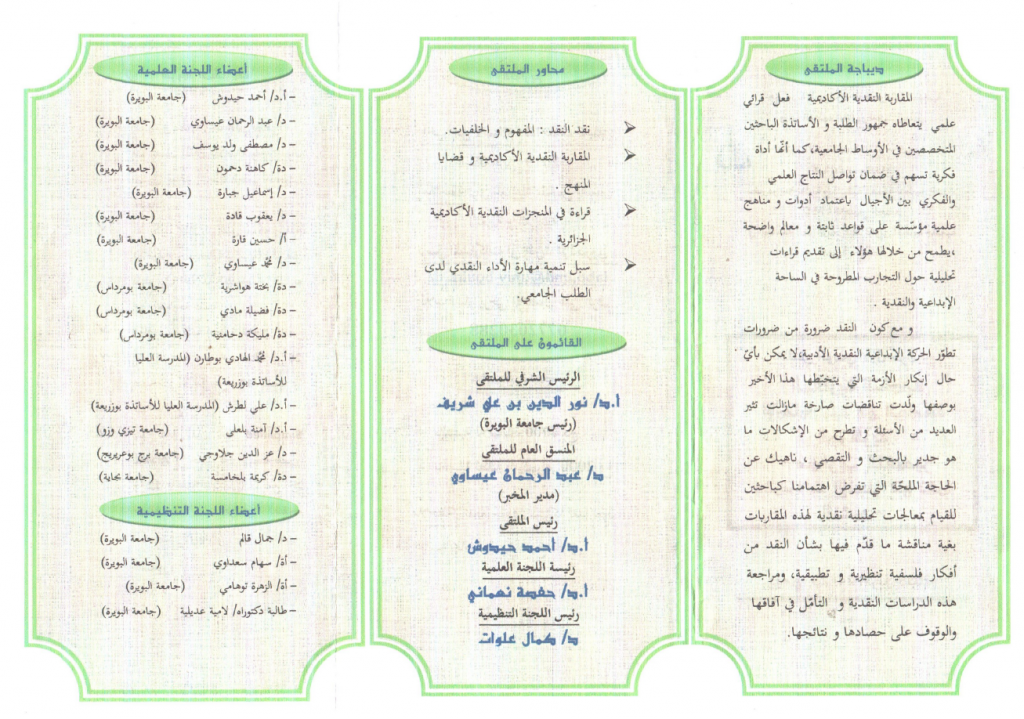 ديباجة الملتقى
المقاربة النقدية الأكاديمية فعل قرائي
علمي يتعاطاه جمهور الطلبة و الأساتذة الباحثين
المتخصصين في الأوساط الجامعية،كما أنّها أداة
فكرية تسهم في ضمان تواصل النتاج العلمي
والفكري بين الأجيال باعتماد أدوات و مناهج
علمية مؤسّسة على قواعد ثابتة و معالم واضحة
،يطمح من خلالها هؤلاء إلى تقديم قراءات
تحليلية حول التجارب المطروحة في الساحة
الإبداعية والنقدية .
و مع كون النقد ضرورة من ضرورات
تطوّر الحركة الإبداعية النقدية الأدبية،لا يمكن بأيّ
حال إنكار الأزمة التي يتخبّطها هذا الأخير
بوصفها ولّدت تناقضات صارخة مازالت تثير
العديد من الأسئلة و تطرح من الإشكالات ما
هو جدير بالبحث و التقصي ، ناهيك عن
الحاجة الملحّة التي تفرض اهتمامنا كباحثين
للقيام بمعالجات تحليلية نقدية لهذه المقاربات
بغية مناقشة ما قدّم فيها بشأن النقد من
أفكار فلسفية تنظيرية و تطبيقية، ومراجعة
هذه الدراسات النقدية و التأمّل في آفاقها
والوقوف على حصادها و نتائجها.
محاور الملتقى
➢ نقد النقد : المفهوم و الخلفيات.
➢ المقاربة النقدية الأكاديمية و قضايا
المنهج .
➢ قراءة في المنجزات النقدية الأكاديمية
الجزائرية .
➢ سبل تنمية مهارة الأداء النقدي لدى
الطلب الجامعي.
القائمون على الملتقى
الرئيس الشرفي للملتقى
أ.د/ نور الدين بن علي شريف
(رئيس جامعة البويرة)
المنسق العام للملتقى
د/ عبد الرحمان عيساوي
(مدير المخبر)
رئيس الملتقى
أ.د/ أحمد حيدوش
رئيسة اللجنة العلمية
أ.د/ حفصة نعماني
رئيس اللجنة التنظيمية
د/ كمال علوات
أعضاء اللجنة العلمية
– أ.د/ أحمد حيدوش (جامعة البويرة)
– د/ عبد الرحمان عيساوي (جامعة البويرة)
– د/ مصطفى ولد يوسف (جامعة البويرة)
– دة/ كاهنة دحمون (جامعة البويرة)
– د/ إسماعيل جبارة (جامعة البويرة)
– د/ يعقوب قادة (جامعة البويرة)
– أ/ حسين قارة (جامعة البويرة)
– د/ محمّد عيساوي (جامعة البويرة)
– دة/ بختة هواشرية (جامعة بومرداس)
– دة/ فضيلة مادي (جامعة بومرداس)
– دة/ مليكة دحامنية (جامعة بومرداس)
– أ.د/ محمّد الهادي بوطارن (المدرسة العليا
للأساتذة بوزريعة)
– أ.د/ علي لطرش (المدرسة العليا للأساتذة بوزريعة)
– أ.د/ آمنة بلعلى (جامعة تيزي وزو)
– د/ عز الدين جلاوجي (جامعة برج بوعريريج)
– دة/ كريمة بلخامسة (جامعة بجاية)
أعضاء اللجنة التنظيمية
– د/ جمال قالم (جامعة البويرة)
– أة/ سهام سعداوي (جامعة البويرة)
– أة/ الزهرة توهامي (جامعة البويرة)
– طالبة دكتوراه/ لامية عديلية (جامعة البويرة)